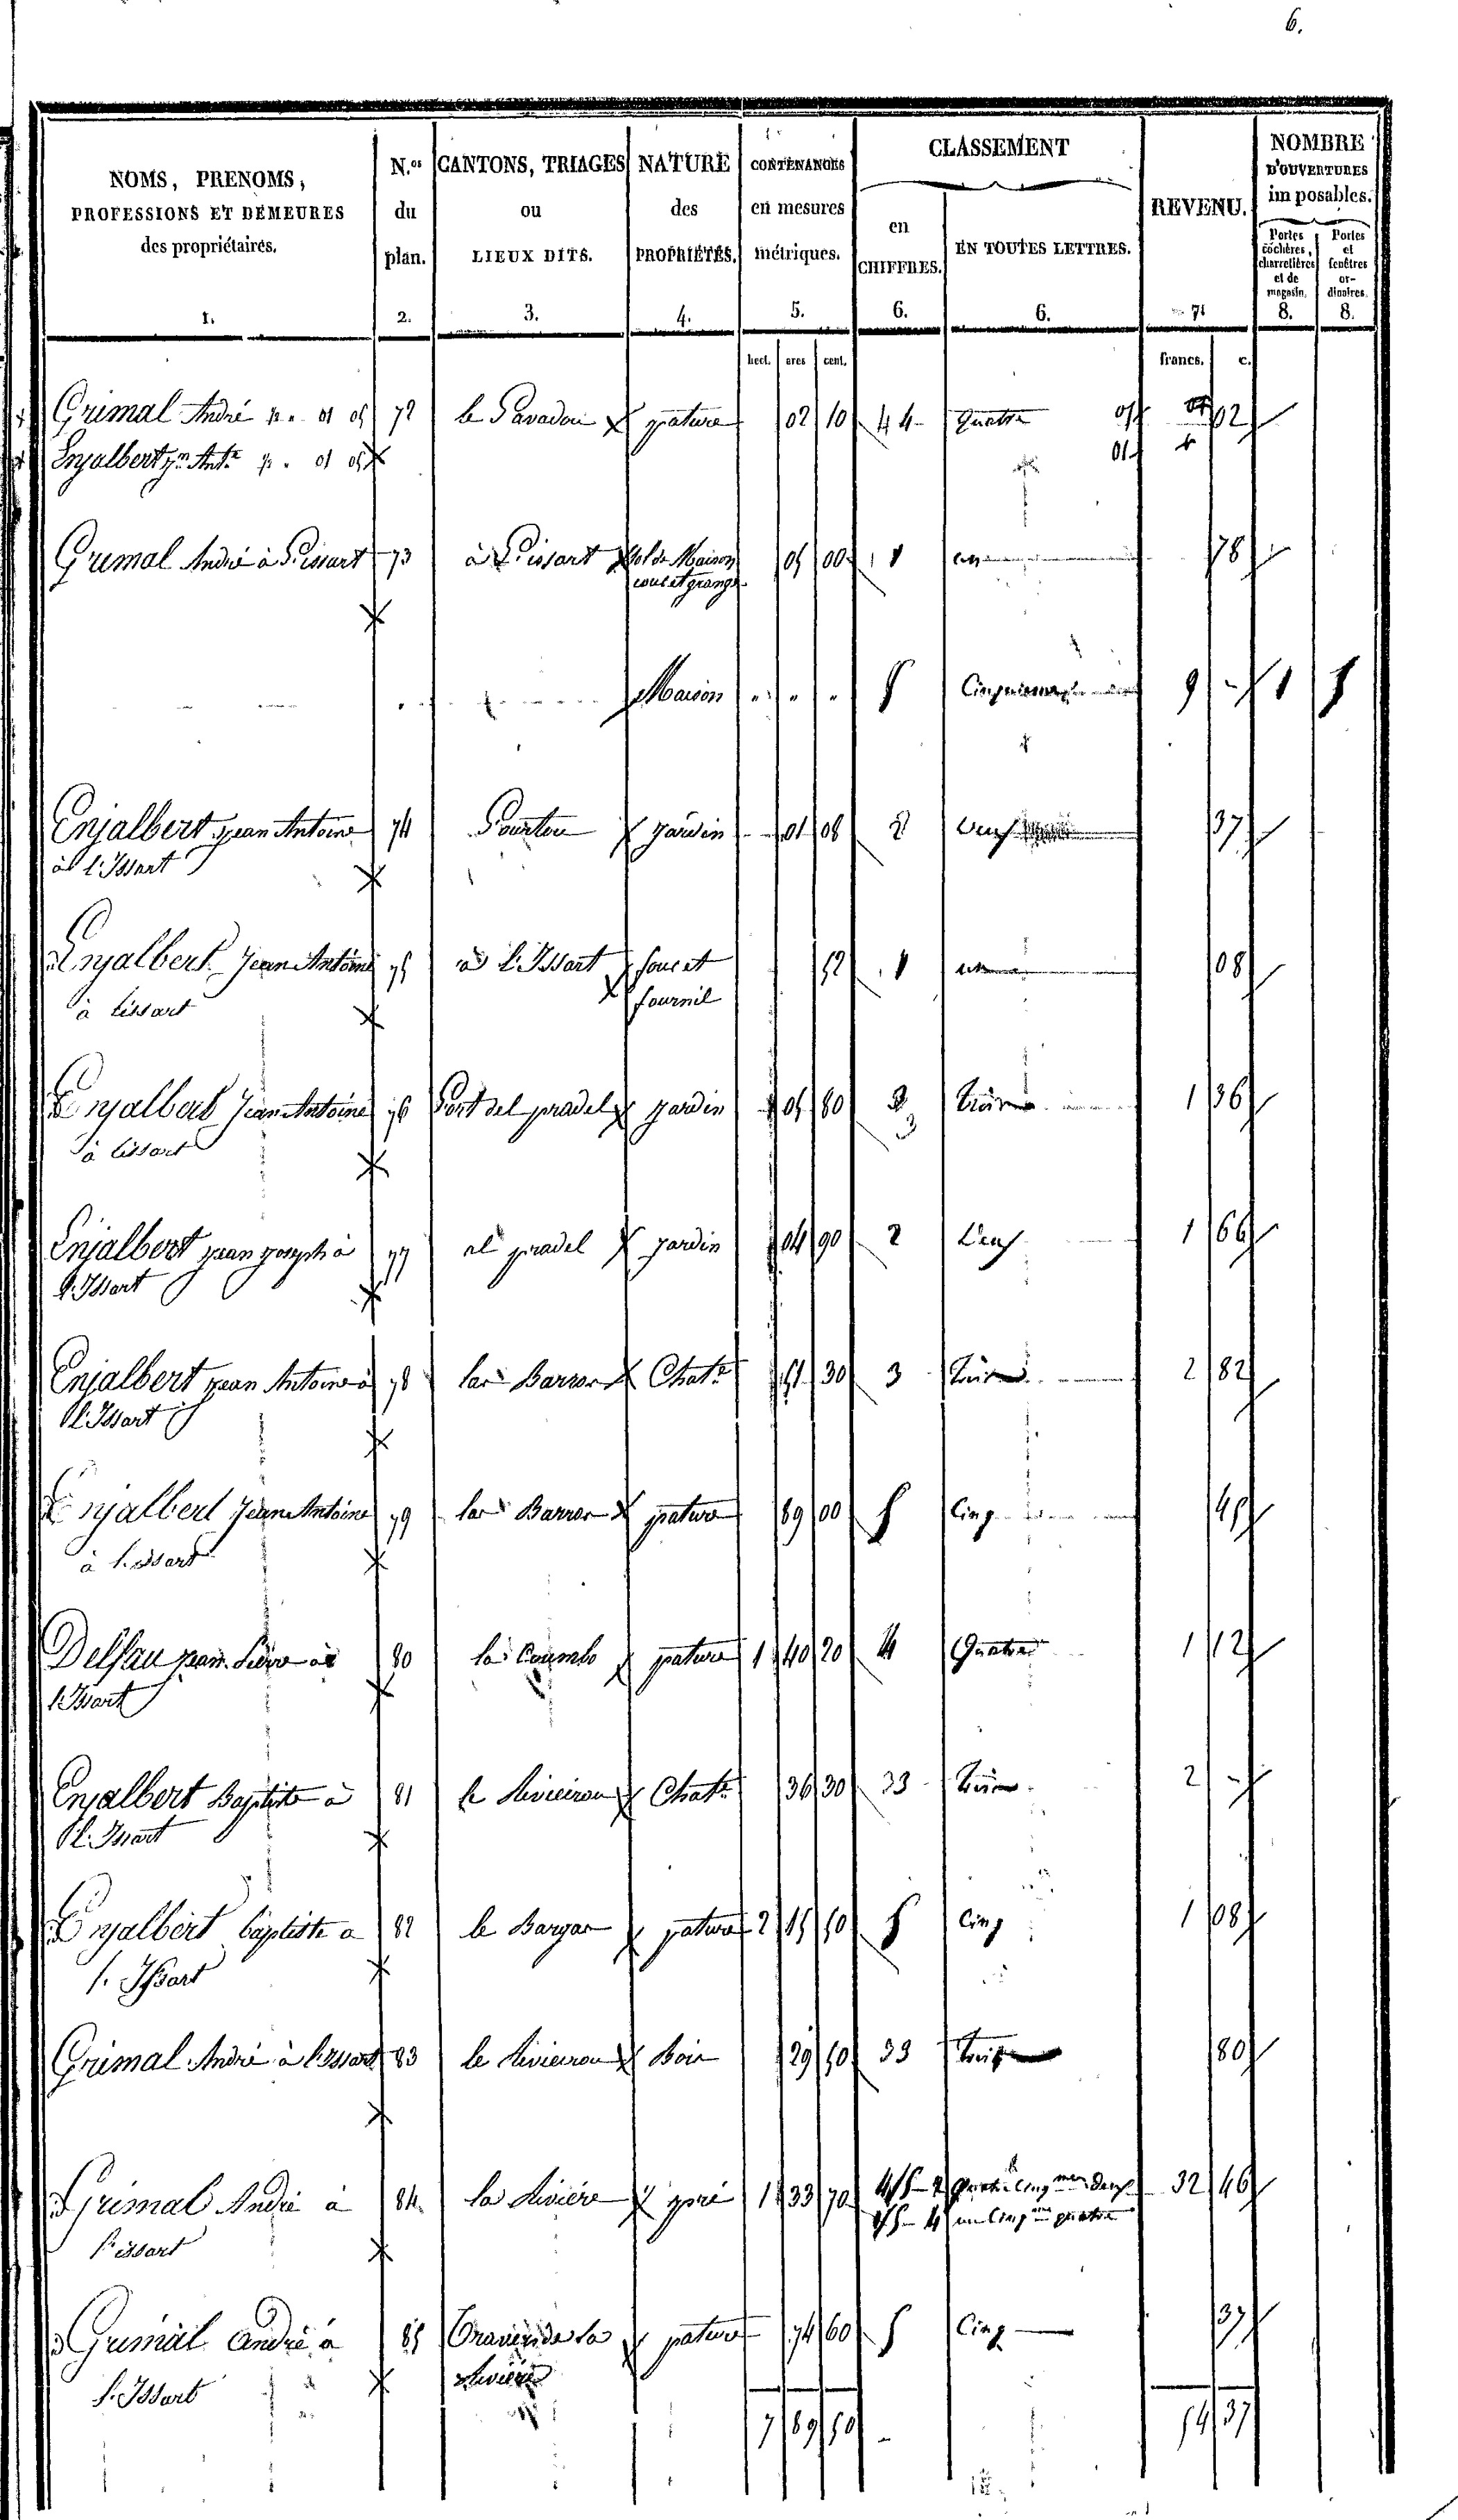 6.
NOMS, PRENOMS, PROFESSIONS ET DEMEURES des propriétaires. 1.
N.os du plan. 2.
CANTONS, TRIAGES ou LIEUX DITS. 3.
NATURE des PROPRIÉTÉS. 4.
CONTENANCES en mesures métriques. 5.
CLASSEMENT
en CHIFFRES. 6.
EN TOUTES LETTRES. 6.
REVENU. 7.
NOMBRE D'OUVERTURES imposables.
Portes cochères, charretières et de magasin. 8.
Portes et fenêtres ordinaires. 8.
hect. ares cent. francs. c.
Grimal André 72 le pature 02 10 4 Quatre 02
Enjalbert
Grimal André à l'issart 73 à l'issart Sol de Maison 05 00 1 78
cour et grange
Maison " " " 5 Cinquieme 9 - 1 5
Enjalbert jean Antoine 74 jardin 01 08 2 Deux 37
à l'Issart
Enjalbert Jean Antoine 75 à l'Issart four et 52 1 08
à lissart fournil
Enjalbert Jean Antoine 76 Port del pradel jardin 05 80 3 1 36
à lissart
Enjalbert jean joseph à 77 al pradel jardin 04 90 2 Deux 1 66
l'Issart
Enjalbert jean Antoine à 78 las Barros Chat.re 51 30 3 Trois 2 82
l'Issart
Enjalbert Jean Antoine 79 las Barros pature 89 00 5 Cinq 45
à l'issart
Delfau jean à 80 la Coumbo pature 1 40 20 4 Quatre 1 12
l'Issart
Enjalbert Baptiste à 81 le Chat.re 36 30 33 Trois 2 -
l'Issart
Enjalbert baptiste a 82 le pature 2 15 50 5 Cinq 1 08
l'Issart
Grimal André à l'issart 83 le Bois 29 50 33 Trois 80
Grimal André à 84 la Rivière pré 1 33 70 4/5 - 2 32 46
l'issart 1/5 - 4 un Cinq.me quatre
Grimal André à 85 Travers de la pature 74 60 5 Cinq 37
l'Issart Rivière
7 89 50 54 37